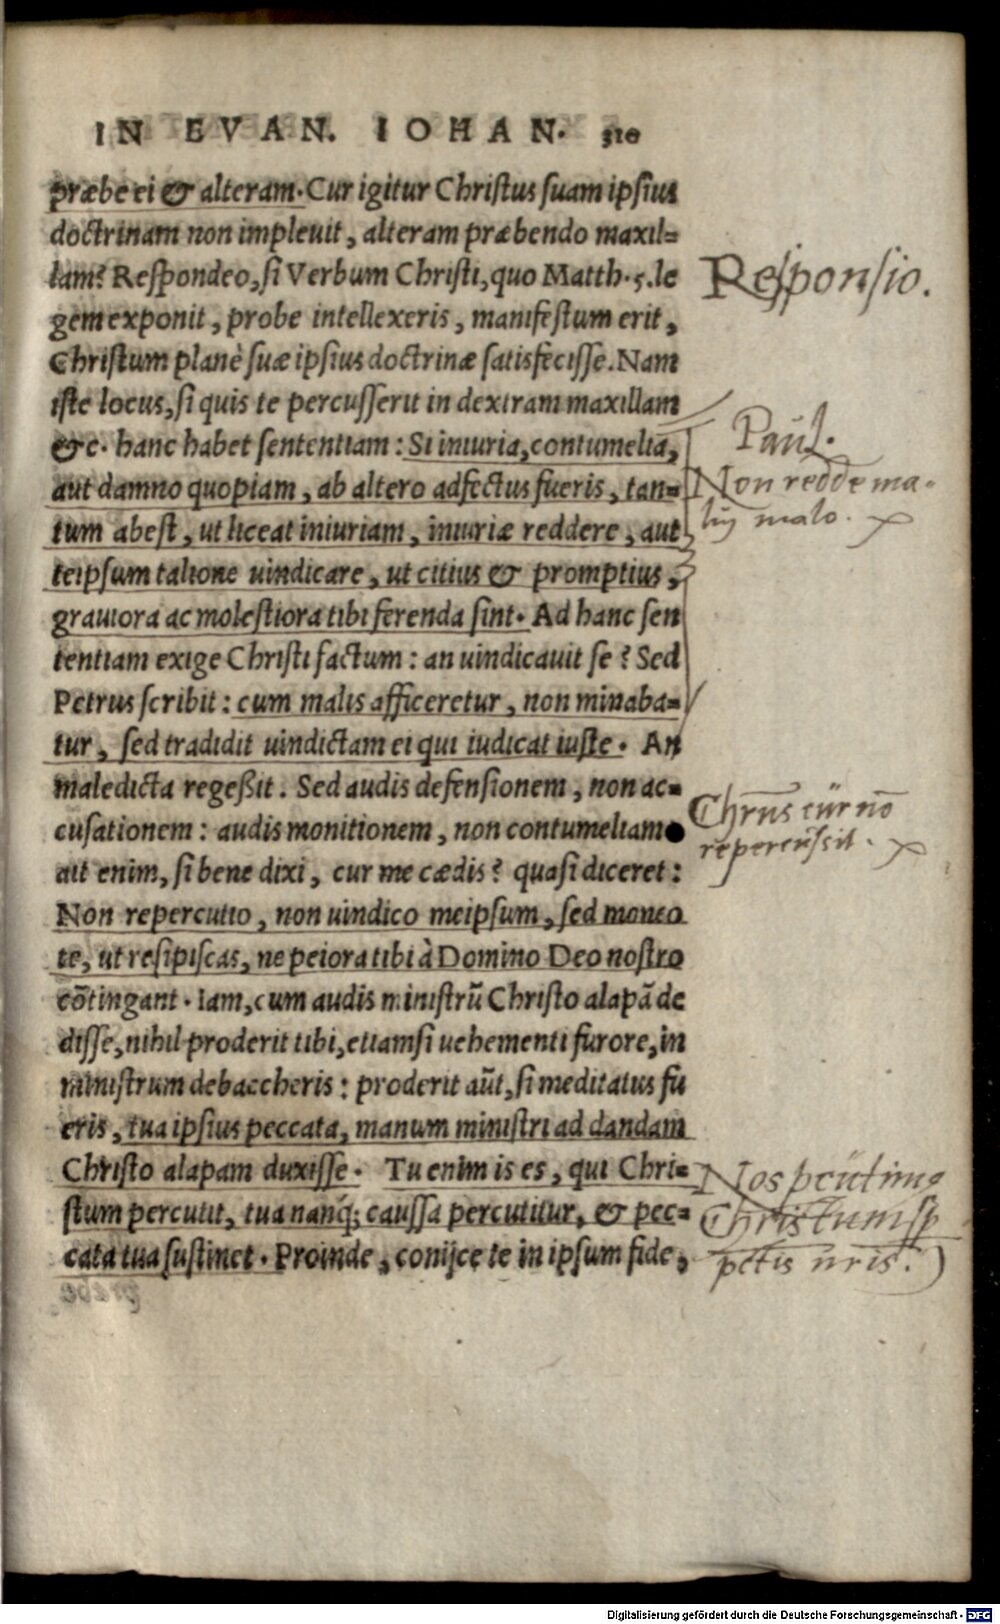 IN EVAN. IOHAN. 310
præbe ei & alteram. Cur igitur Christus suam ipsius
doctrinam non impleuit, alteram præbendo maxil-
lam? Respondeo, si Verbum Christi, quo Matth. 5. le
gem exponit, probe intellexeris, manifestum erit,
Christum planè suæ ipsius doctrinæ satisfecisse. Nam
iste locus, si quis te percusserit in dextram maxillam
&c. hanc habet sententiam: Si iniuria, contumelia,
aut damno quopiam, ab altero adfectus fueris, tan-
tum abest, ut liceat iniuriam, iniuriæ reddere, aut
teipsum talione uindicare, ut citius & promptius,
grauiora ac molestiora tibi ferenda sint. Ad hanc sen
tentiam exige Christi factum: an uindicauit se? Sed
Petrus scribit: cum malis afficeretur, non minaba-
tur, sed tradidit uindictam ei qui iudicat iuste. An
maledicta regeßit. Sed audis defensionem, non ac-
cusationem: audis monitionem, non contumeliam
ait enim, si bene dixi, cur me cædis? quasi diceret:
Non repercutio, non uindico meipsum, sed moneo
te, ut resipiscas, ne peiora tibi à Domino Deo nostro
cõtingant. Iam, cum audis ministrũ Christo alapã de
disse, nihil proderit tibi, etiamsi uehementi furore, in
ministrum debaccheris: proderit aũt, si meditatus fu
eris, tua ipsius peccata, manum ministri ad dandam
Christo alapam duxisse. Tu enim is es, qui Chri-
stum percutit, tua nanq; caussa percutitur, & pec-
cata tua sustinet. Proinde, conijce te in ipsum fide,
Responsio.
Paul.
Non redde ma-
lum malo.
Chrus cur nō
repercussit.
Nos
Christum
pctis nris.
Digitalisierung gefördert durch die Deutsche Forschungsgemeinschaft - DFG